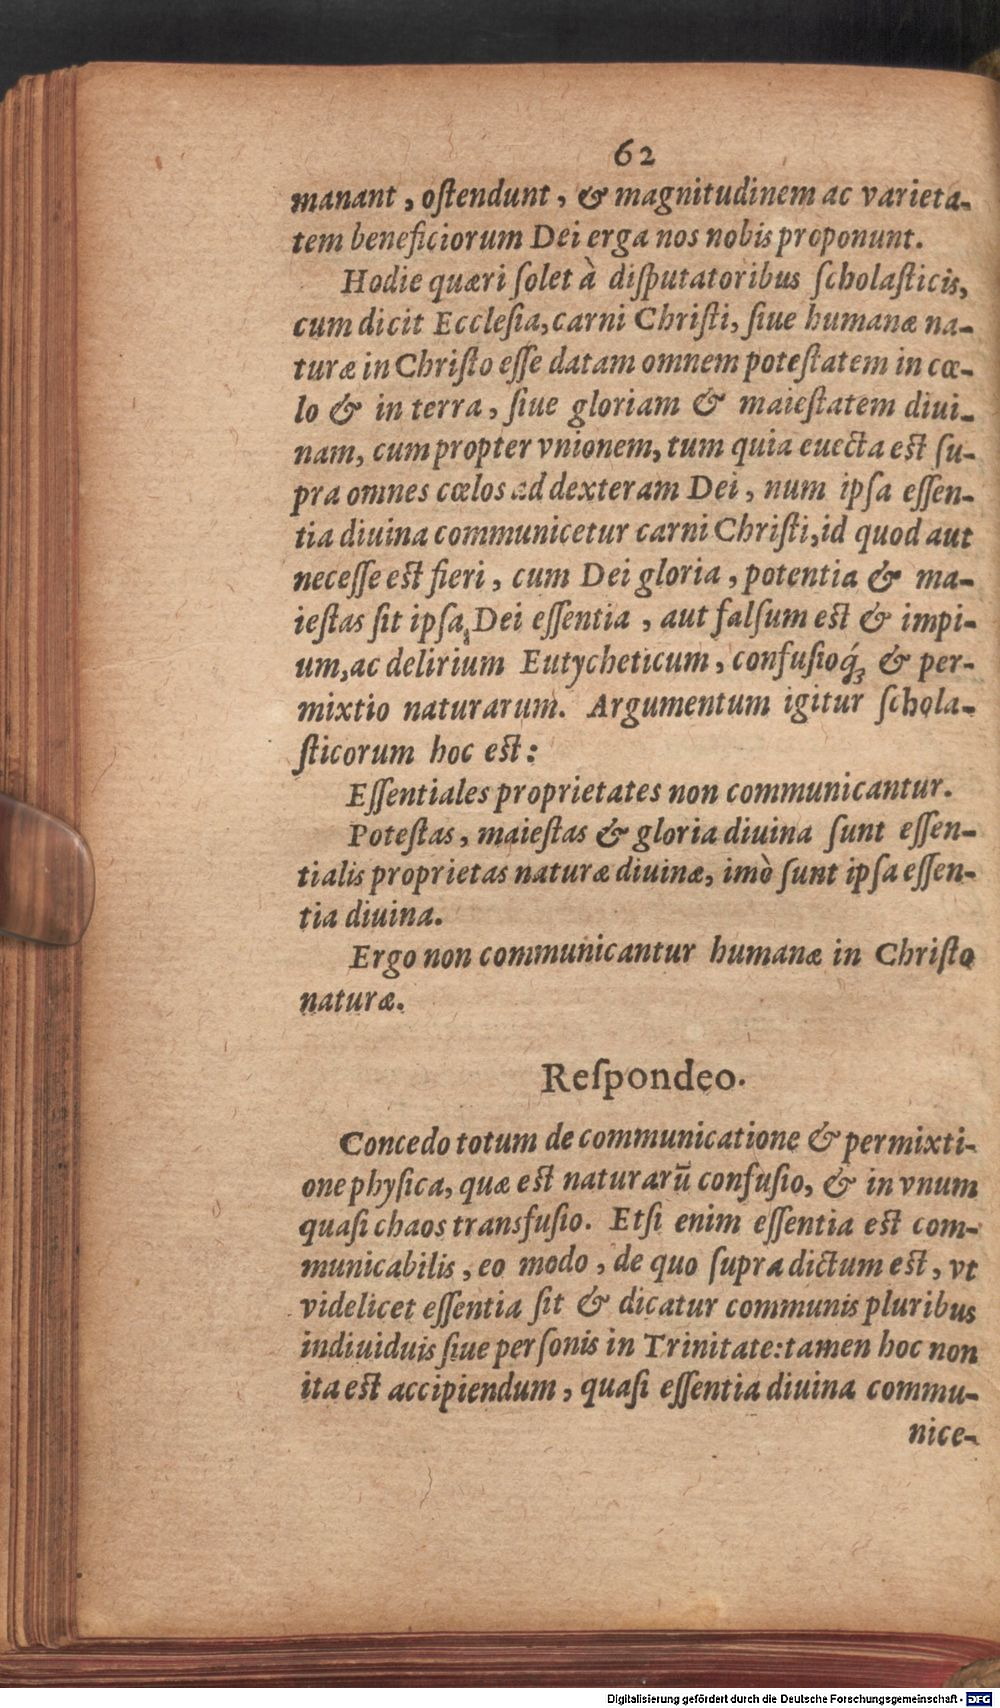 62
manant, oſtendunt, & magnitudinem ac varieta-
tem beneficiorum Dei erga nos nobis proponunt.
Hodie quæri ſolet à diſputatoribus ſcholaſticis,
cum dicit Eccleſia, carni Chriſti, ſiue humanæ na-
turæ in Chriſto eſſe datam omnem poteſtatem in cœ-
lo & in terra, ſiue gloriam & maieſtatem diui-
nam, cum propter vnionem, tum quia euecta eſt ſu-
pra omnes cœlos ad dexteram Dei, num ipſa eſſen-
tia diuina communicetur carni Chriſti, id quod aut
neceſſe eſt fieri, cum Dei gloria, potentia & ma-
ieſtas ſit ipſa Dei eſſentia, aut falſum eſt & impi-
um, ac delirium Eutycheticum, confuſioq́ꝫ & per-
mixtio naturarum. Argumentum igitur ſchola-
ſticorum hoc eſt:
Eſſentiales proprietates non communicantur.
Poteſtas, maieſtas & gloria diuina ſunt eſſen-
tialis proprietas naturæ diuinæ, imò ſunt ipſa eſſen-
tia diuina.
Ergo non communicantur humanæ in Chriſto
naturæ.
Reſpondeo.
Concedo totum de communicatione & permixti-
one phyſica, quæ eſt naturarū confuſio, & in vnum
quaſi chaos transfuſio. Etſi enim eſſentia eſt com-
municabilis, eo modo, de quo ſupra dictum eſt, vt
videlicet eſſentia ſit & dicatur communis pluribus
indiuiduis ſiue perſonis in Trinitate: tamen hoc non
ita eſt accipiendum, quaſi eſſentia diuina commu-
nice-
Digitalisierung gefördert durch die Deutsche Forschungsgemeinschaft - DFG